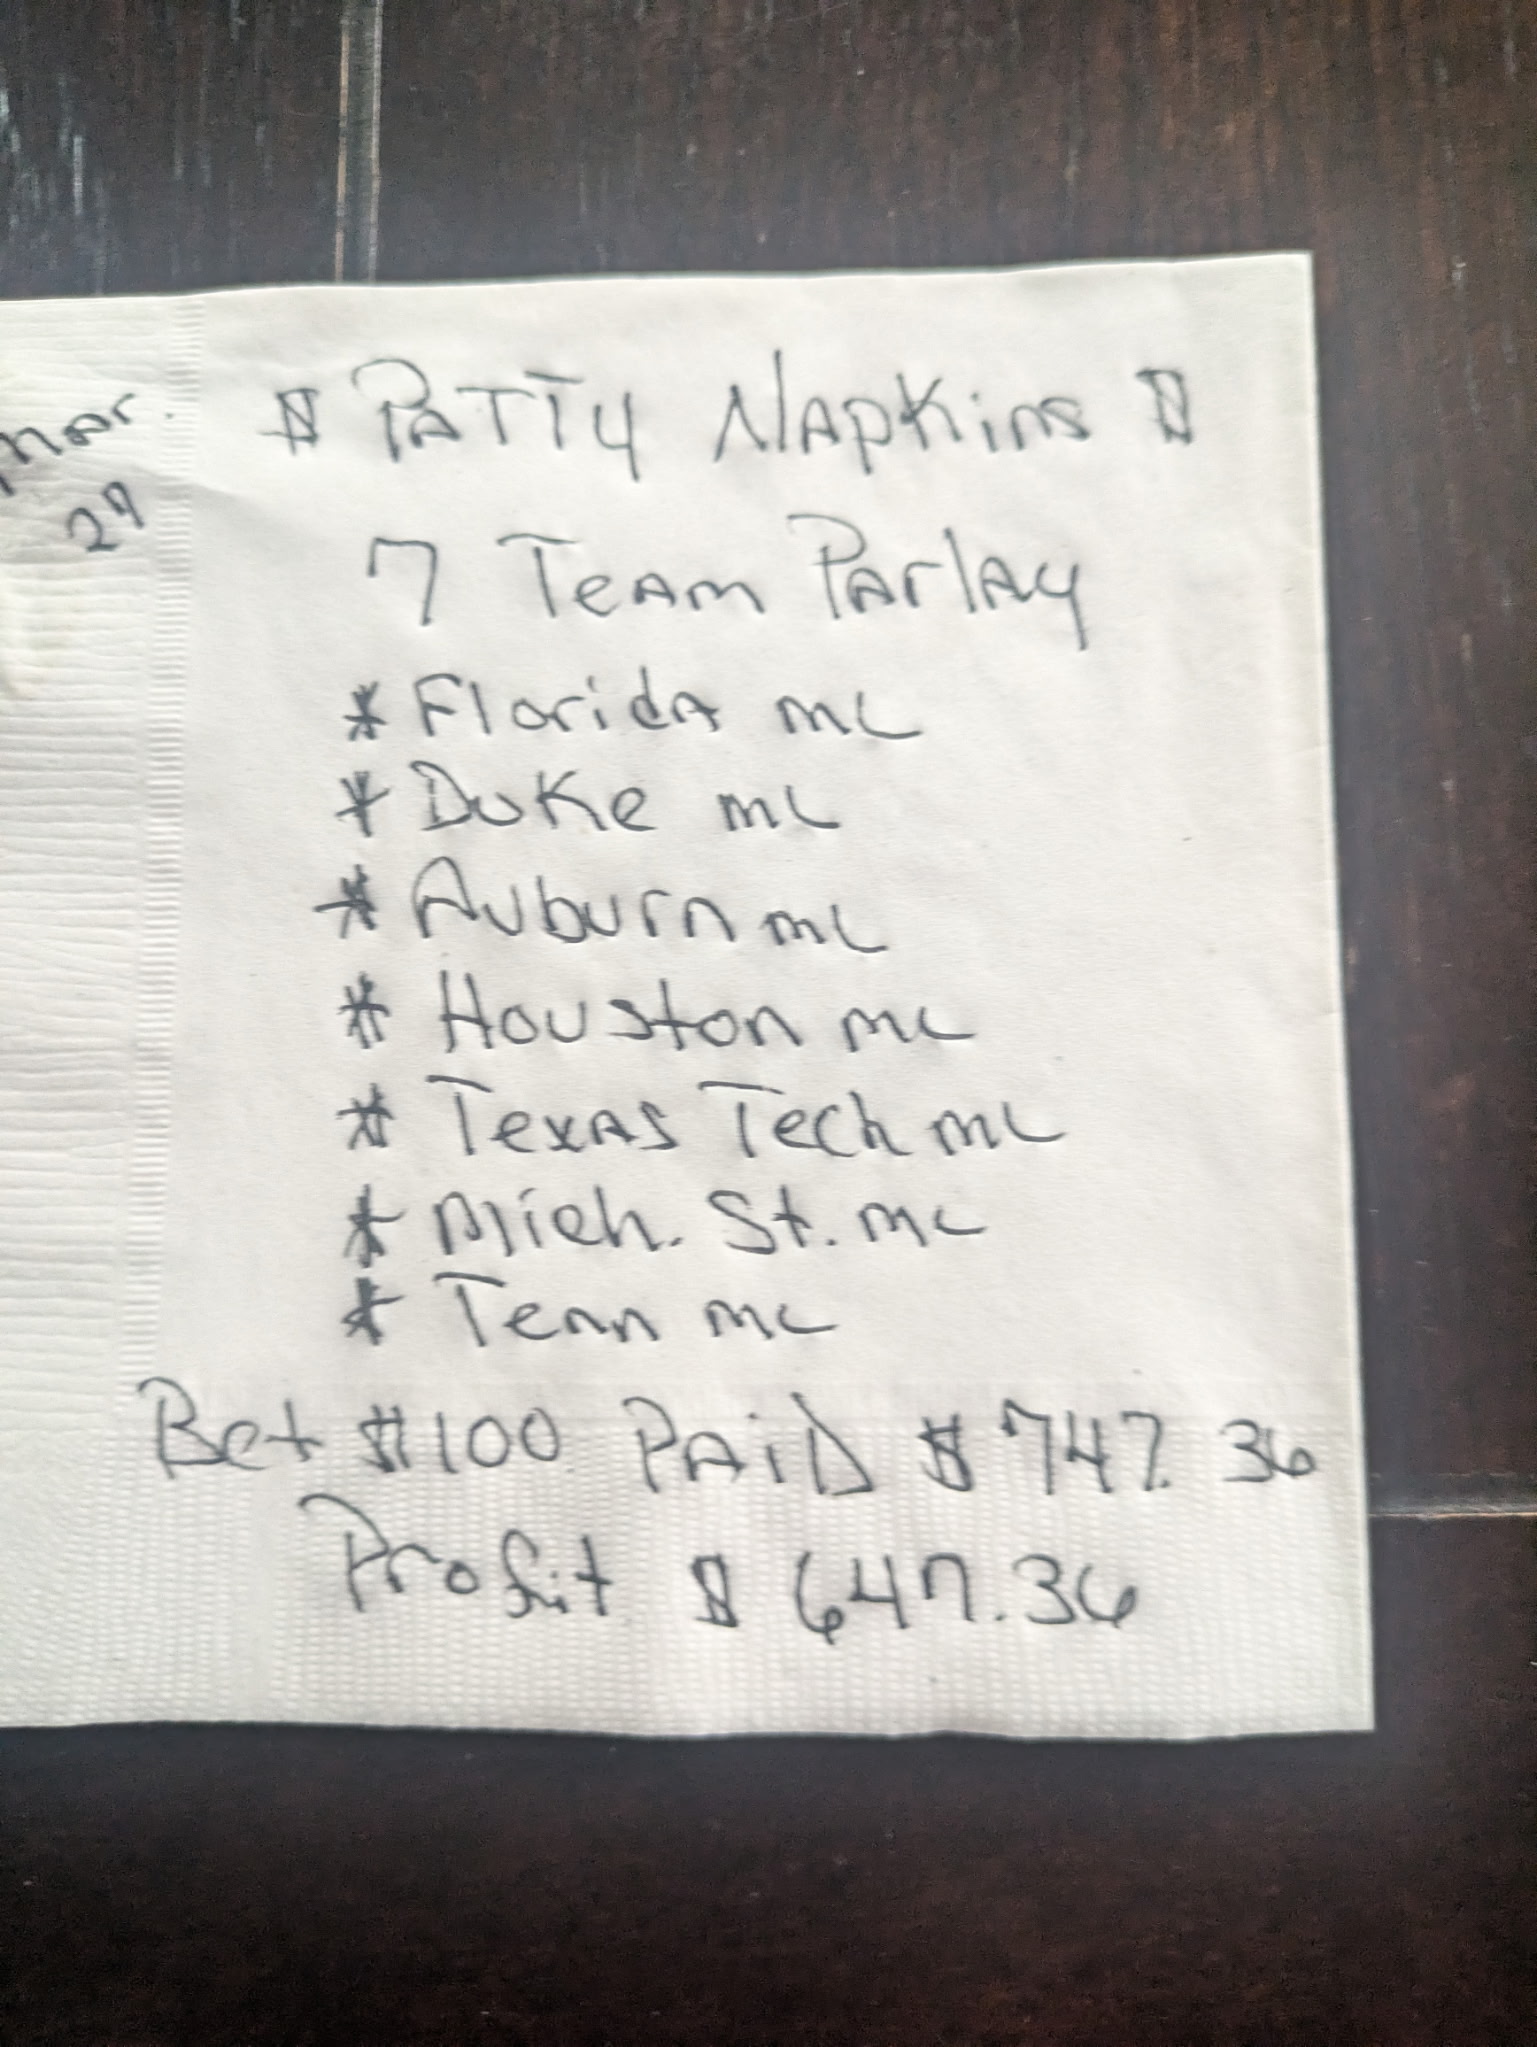 mar.
27
$ PATTY NAPKins $
7 TEAM PARlAy
* FloridA mL
* DuKe mL
* Auburn mL
* Houston mL
* TexAs Tech mL
* Mich. St. mL
* Tenn mL
Bet $100 PAiD $747.36
Profit $647.36